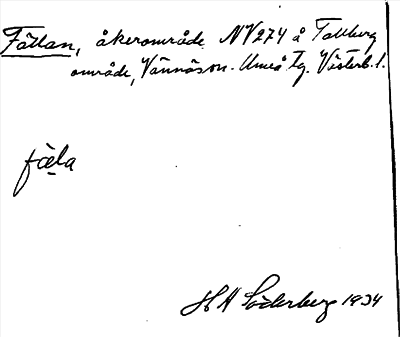 Fällan, åkerområde NV274 å Tallberg
område, Vännäs sn. Umeå tg. Västerb. l.
fäla
H A Söderberg 1934